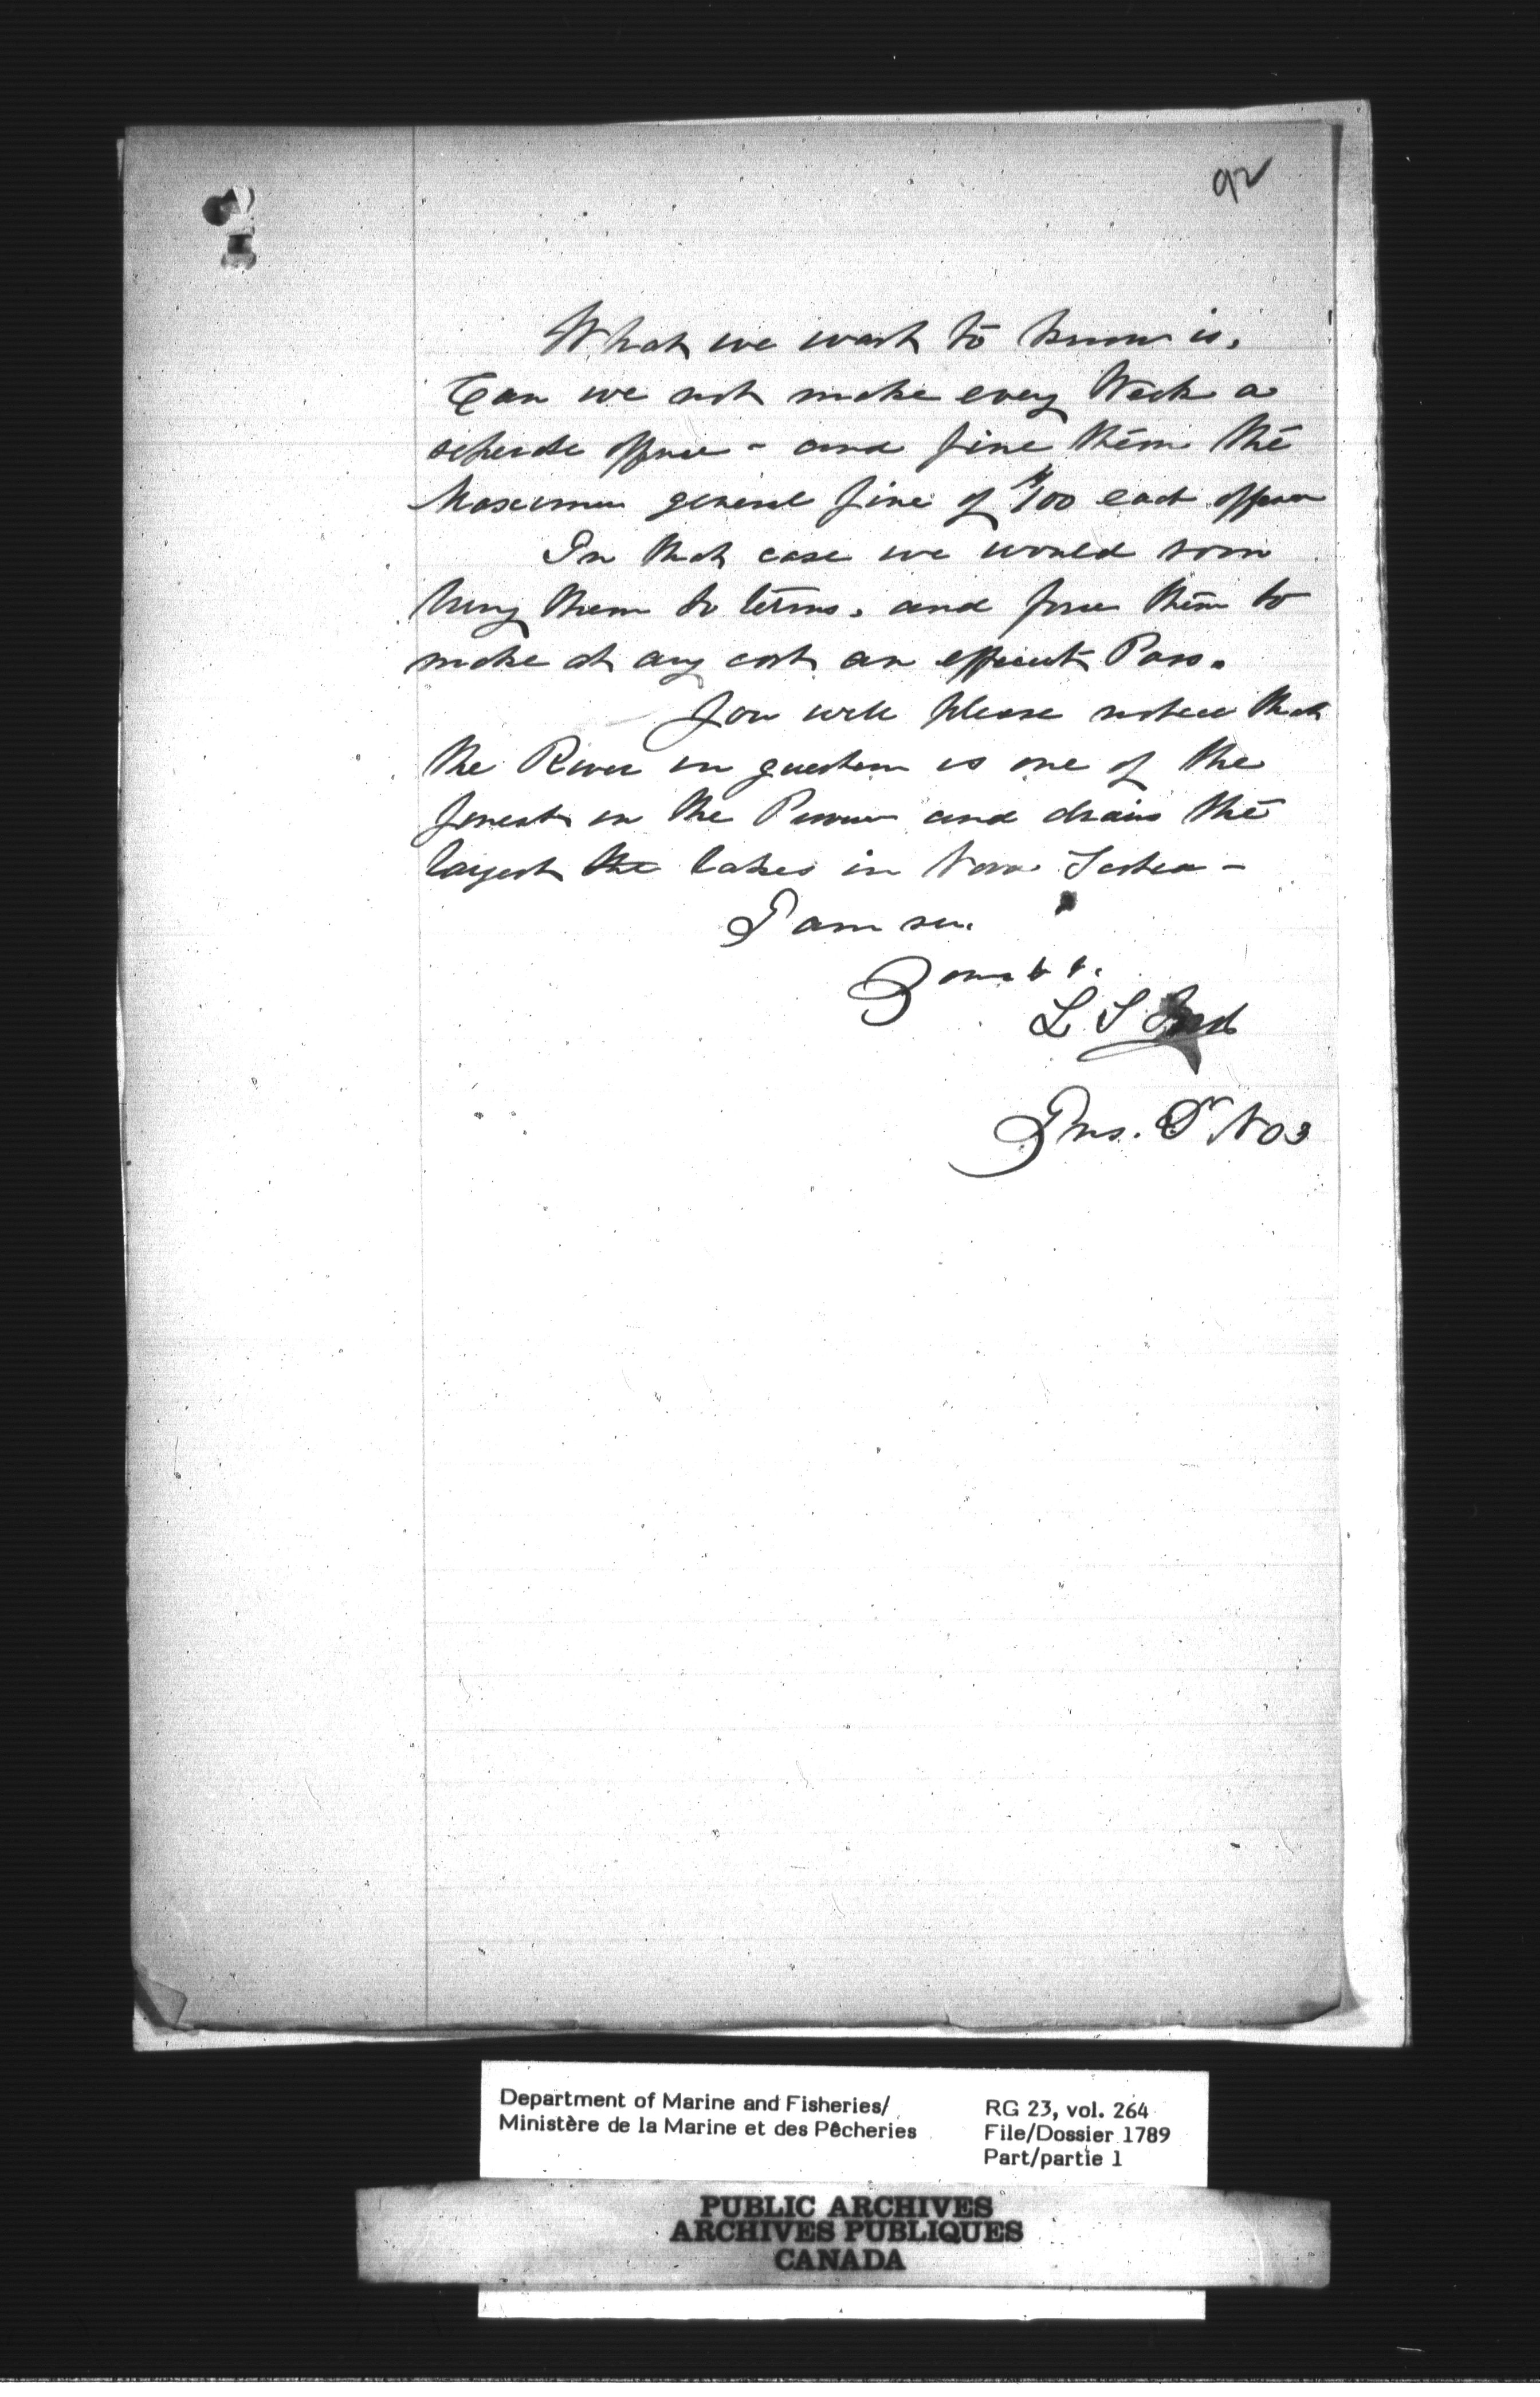 92
What we want to know is,
Can we not make every Week a
seperate offence - and fine them the
Maximum general fine of $100 each offence
In that case we would soon
bring them to terms, and force them to
make at any cost an efficient Pass.
You will please notice that
the River in question is one of the
finest in the Province and drains the
largest the lakes in Nova Scotia -
I am sir.
Yours &c.
L S Ford
Ins. Dt No 3
Department of Marine and Fisheries/
Ministère de la Marine et des Pêcheries
RG 23, vol. 264
File/Dossier 1789
Part/partie 1
PUBLIC ARCHIVES
ARCHIVES PUBLIQUES
CANADA